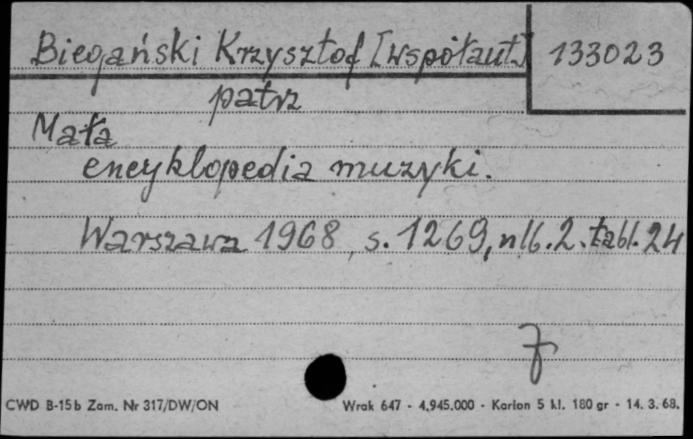 Biegański Krzysztof [współaut.] 133023
patrz
Mała
encyklopedia muzyki.
Warszawa 1968, s. 1269, nlb. 2. tabl. 24
7
CWD B-15b Zam. Nr 317/DW/ON Wrak 647 - 4.945.000 - Karton 5 kl. 180 gr - 14. 3. 68.